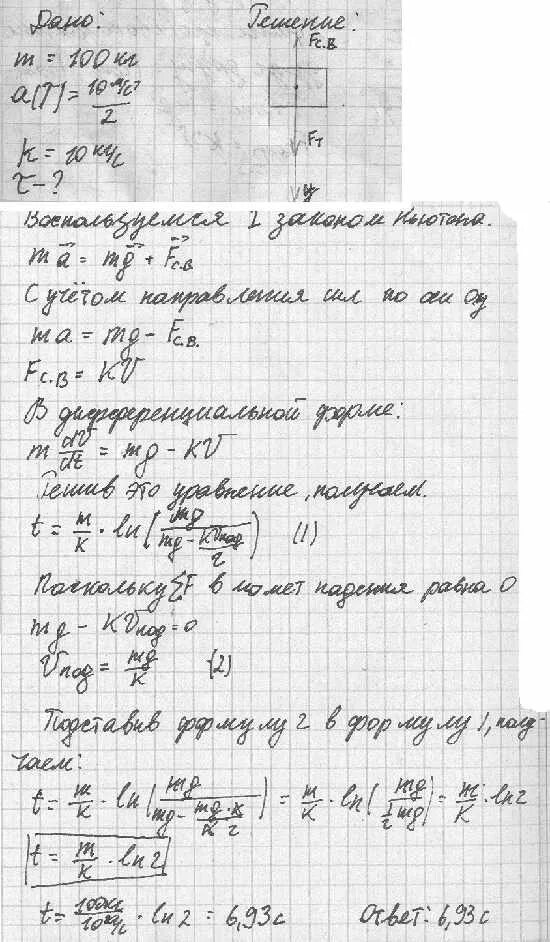 Дано: Решение:
m = 100 кг
a(τ) = 10 м/с² / 2
k = 10 кг/с
τ - ?
Fс.в
Fт
y
Воспользуемся I законом Ньютона.
ma⃗ = mg⃗ + F⃗с.в
С учётом направления сил по оси Oy
ma = mg - Fс.в.
Fс.в = KV
В дифференциальной форме:
m dV/dt = mg - KV
Решив это уравнение, получаем.
t = m/K · ln(mg/(mg - KVпад/2)) (1)
Поскольку ΣF в момет падения равна 0
mg - KVпад = 0
Vпад = mg/K (2)
Подставив формулу 2 в формулу 1, полу-
чаем:
t = m/K · ln(mg/(mg - mg·K/K·2)) = m/K · ln(mg/(1/2 mg)) = m/K · ln2
t = m/K · ln2
t = 100кг/10кг/с · ln2 = 6,93с Ответ: 6,93с